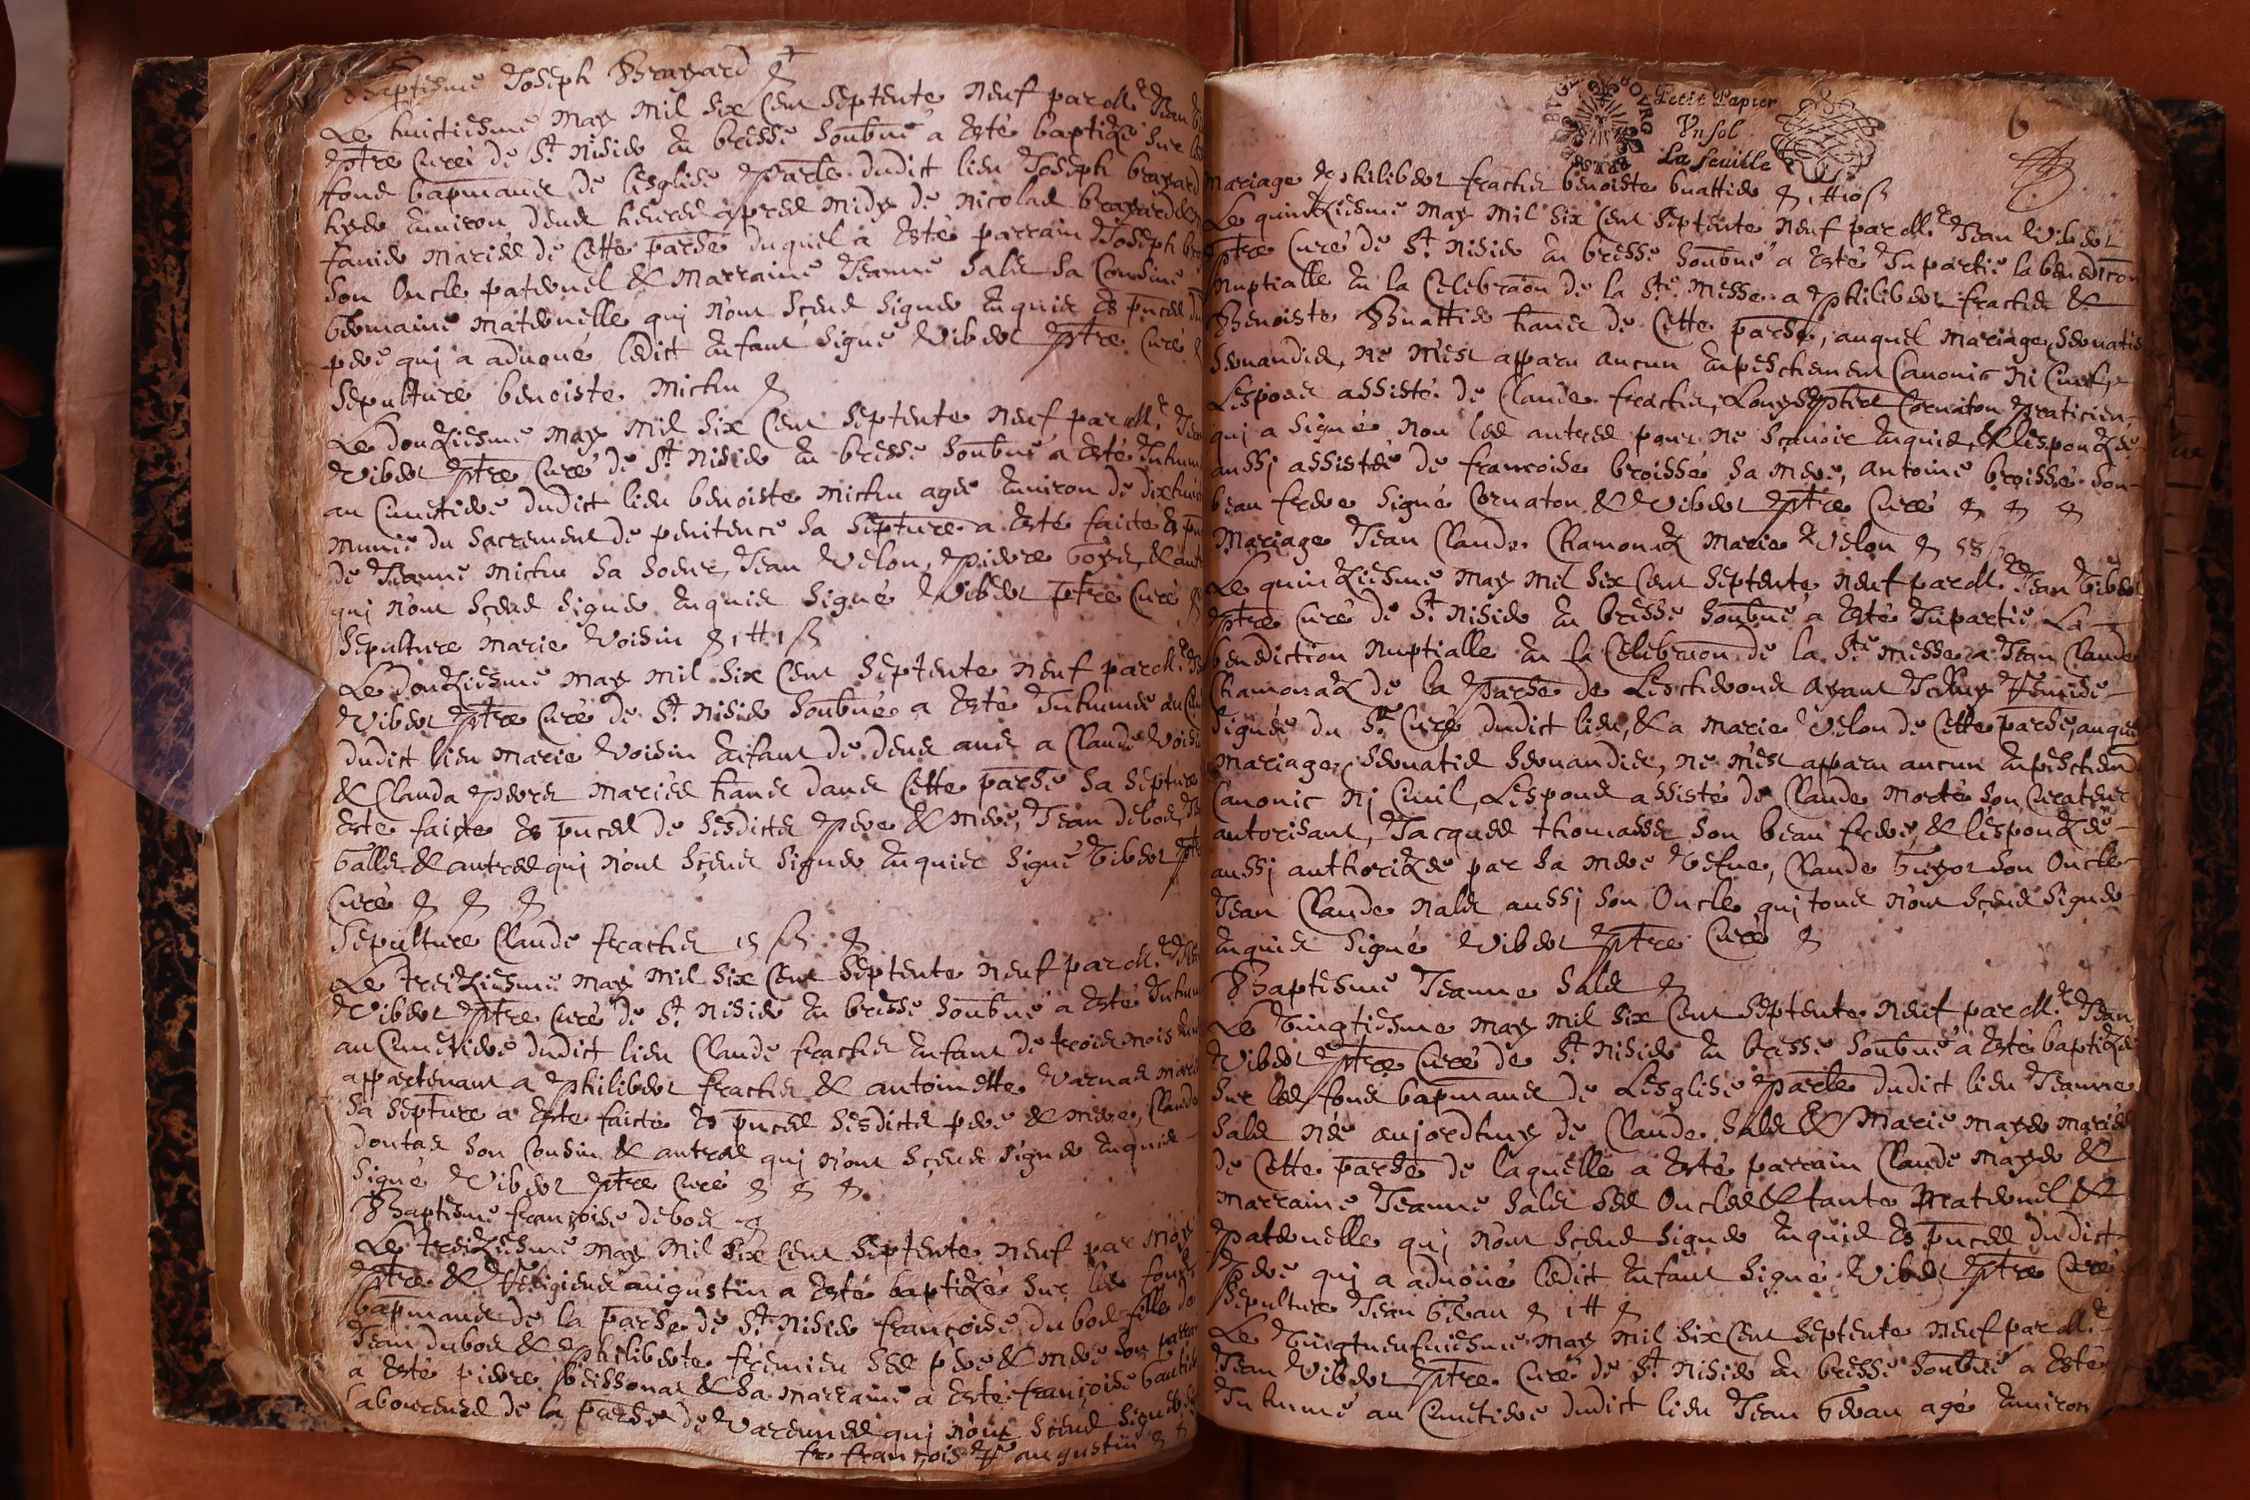 Baptesme Joseph Brayard
Le huictiesme may mil six cent septente neuf par M.re Jean
Ptre Curé de St Nisier en bresse soubné a esté baptizé sur les
fond bapmaux de lesglise parlle dudict lieu Joseph brayard
hyer environ deux heures apres midy de nicolas brayard &
mariés de cette parsse duquel a esté parrain Joseph
son oncle paternel & Marraine Jeanne Sales sa Cousine
Germaine maternelle qui n'ont sceus signer enquis es pnces du
pere qui a advoué ledict enfant signé Viber Ptre Curé
Sepulture benoiste michu
Le douziesme may mil six cent septente neuf par M.re Jean
Viber Ptre Curé de St Nisier en bresse soubné a esté Inhumé
au Cimetiere dudict lieu benoiste michu agée environ de dixhuict
munie du sacrement de penitence sa septure a esté faicte es pn
de Jeanne michu sa soeur, Jean Velon, pierre & aut
qui n'ont sceus signer enquis signé Viber ptre Curé
Sepulture marie Voisin
Le douziesme may mil six cent septente neuf par M.re
Viber Ptre Curé de St Nisier soubné a esté Inhumée au Cim
dudict lieu marie Voisin enfant de deux ans a Claude Voisin
& Clauda mariés dans cette parsse sa septure
esté faicte es pnces de sesdicts pere & mere, Jean debos,
& autres qui n'ont sceus signer enquis signé Viber Ptre
Curé
Sepulture Claude frachet
Le treiziesme may mil six cent septente neuf par M.re
Viber Ptre Curé de St Nisier en bresse soubné a esté Inhum
au Cimetiere dudict lieu Claude frachet enfant de trois mois
appartenant a philiber frachet & antoinette Varnas mariés
sa septure a esté faicte es pnces sesdicts pere & mere, Claude
doutas son Cousin & autres qui n'ont sceus signer enquis
signé Viber ptre Curé
Baptesme françoise debos
Le treiziesme may mil six cent septente neuf par moy
Ptre & Religieux augustin a esté baptizée sur les fonds
bapmaux de la parsse de St Nisier françoise dubos fille de
Jean dubos & philiberte fremieu ses pere & mere son parrain
a esté pierre & sa marraine a esté françoise
laboureurs de la parsse de Varennes qui n'ont sceus signer
fr françois augustin
BOURG BRESSE
Petit Papier
Vn sol
La feuille
6
Mariage philiber frachet benoiste buattier
Le quinziesme may mil six cent septente neuf par M.re Jean Viber
Ptre Curé de St Nisier en bresse soubné a esté Impartie la benediction
nuptialle en la Celebraon de la Ste messe a philiber frachet &
Benoiste Buattier de cette parsse, auquel mariage servatis
servandis, ne m'est apparu aucun empeschement Canonic ni Civil,
Lespoux assisté de Claude frachet, Cornaton praticien
qui a signé non les autres pour ne sçavoir enquis, & lespouzée
aussi assistée de françoise broissé sa mere, antoine broissé son
beau frere signé Cornaton & Viber Ptre Curé
Mariage Jean Claude Chamonaz Marie Velon
Le quinziesme may mil six cent septente neuf par M.re Jean Viber
Ptre Curé de St Nisier en bresse soubné a esté Impartie La
benediction Nuptialle en la Celebraon de la Ste messe a Jean Claude
Chamonaz de la Parsse de Lescheroux ayant Remise
signée du Sr Curé dudict lieu, & a marie Velon de cette parsse, auquel
mariage servatis servandis, ne m'est apparu aucun empeschem
Canonic ni Civil, Lespoux assisté de Claude morté son Curateur
autorisant, Jacques thomasset son beau frere, & lespouzée
aussi authorizée par sa mere Vefue, Claude son Oncle
Jean Claude nalet aussi son Oncle qui tous n'ont sceus signer
enquis signé Viber ptre Curé
Baptesme Jeanne Sales
Le vingtiesme may mil six cent septente neuf par M.re Jean
Viber Ptre Curé de St Nisier en bresse soubné a esté baptizée
sur les fond bapmaux de Lesglise parlle dudict lieu Jeanne
Sales née aujordhuy de Claude Sales & Marie mariés
de cette parsse de laquelle a esté parrain Claude &
marraine Jeanne Sales ses Oncles & tante Maternel &
paternelle qui n'ont sceus signer enquis es pnces dudict
Pere qui a advoué ledict enfant signé Viber Ptre Curé
Sepulture Jean
Le vingtneufuiesme may mil six cent septente neuf par M.re
Jean Viber ptre Curé de St Nisier en bresse soubné a esté
Inhumé au Cimetiere dudict lieu Jean agé environ